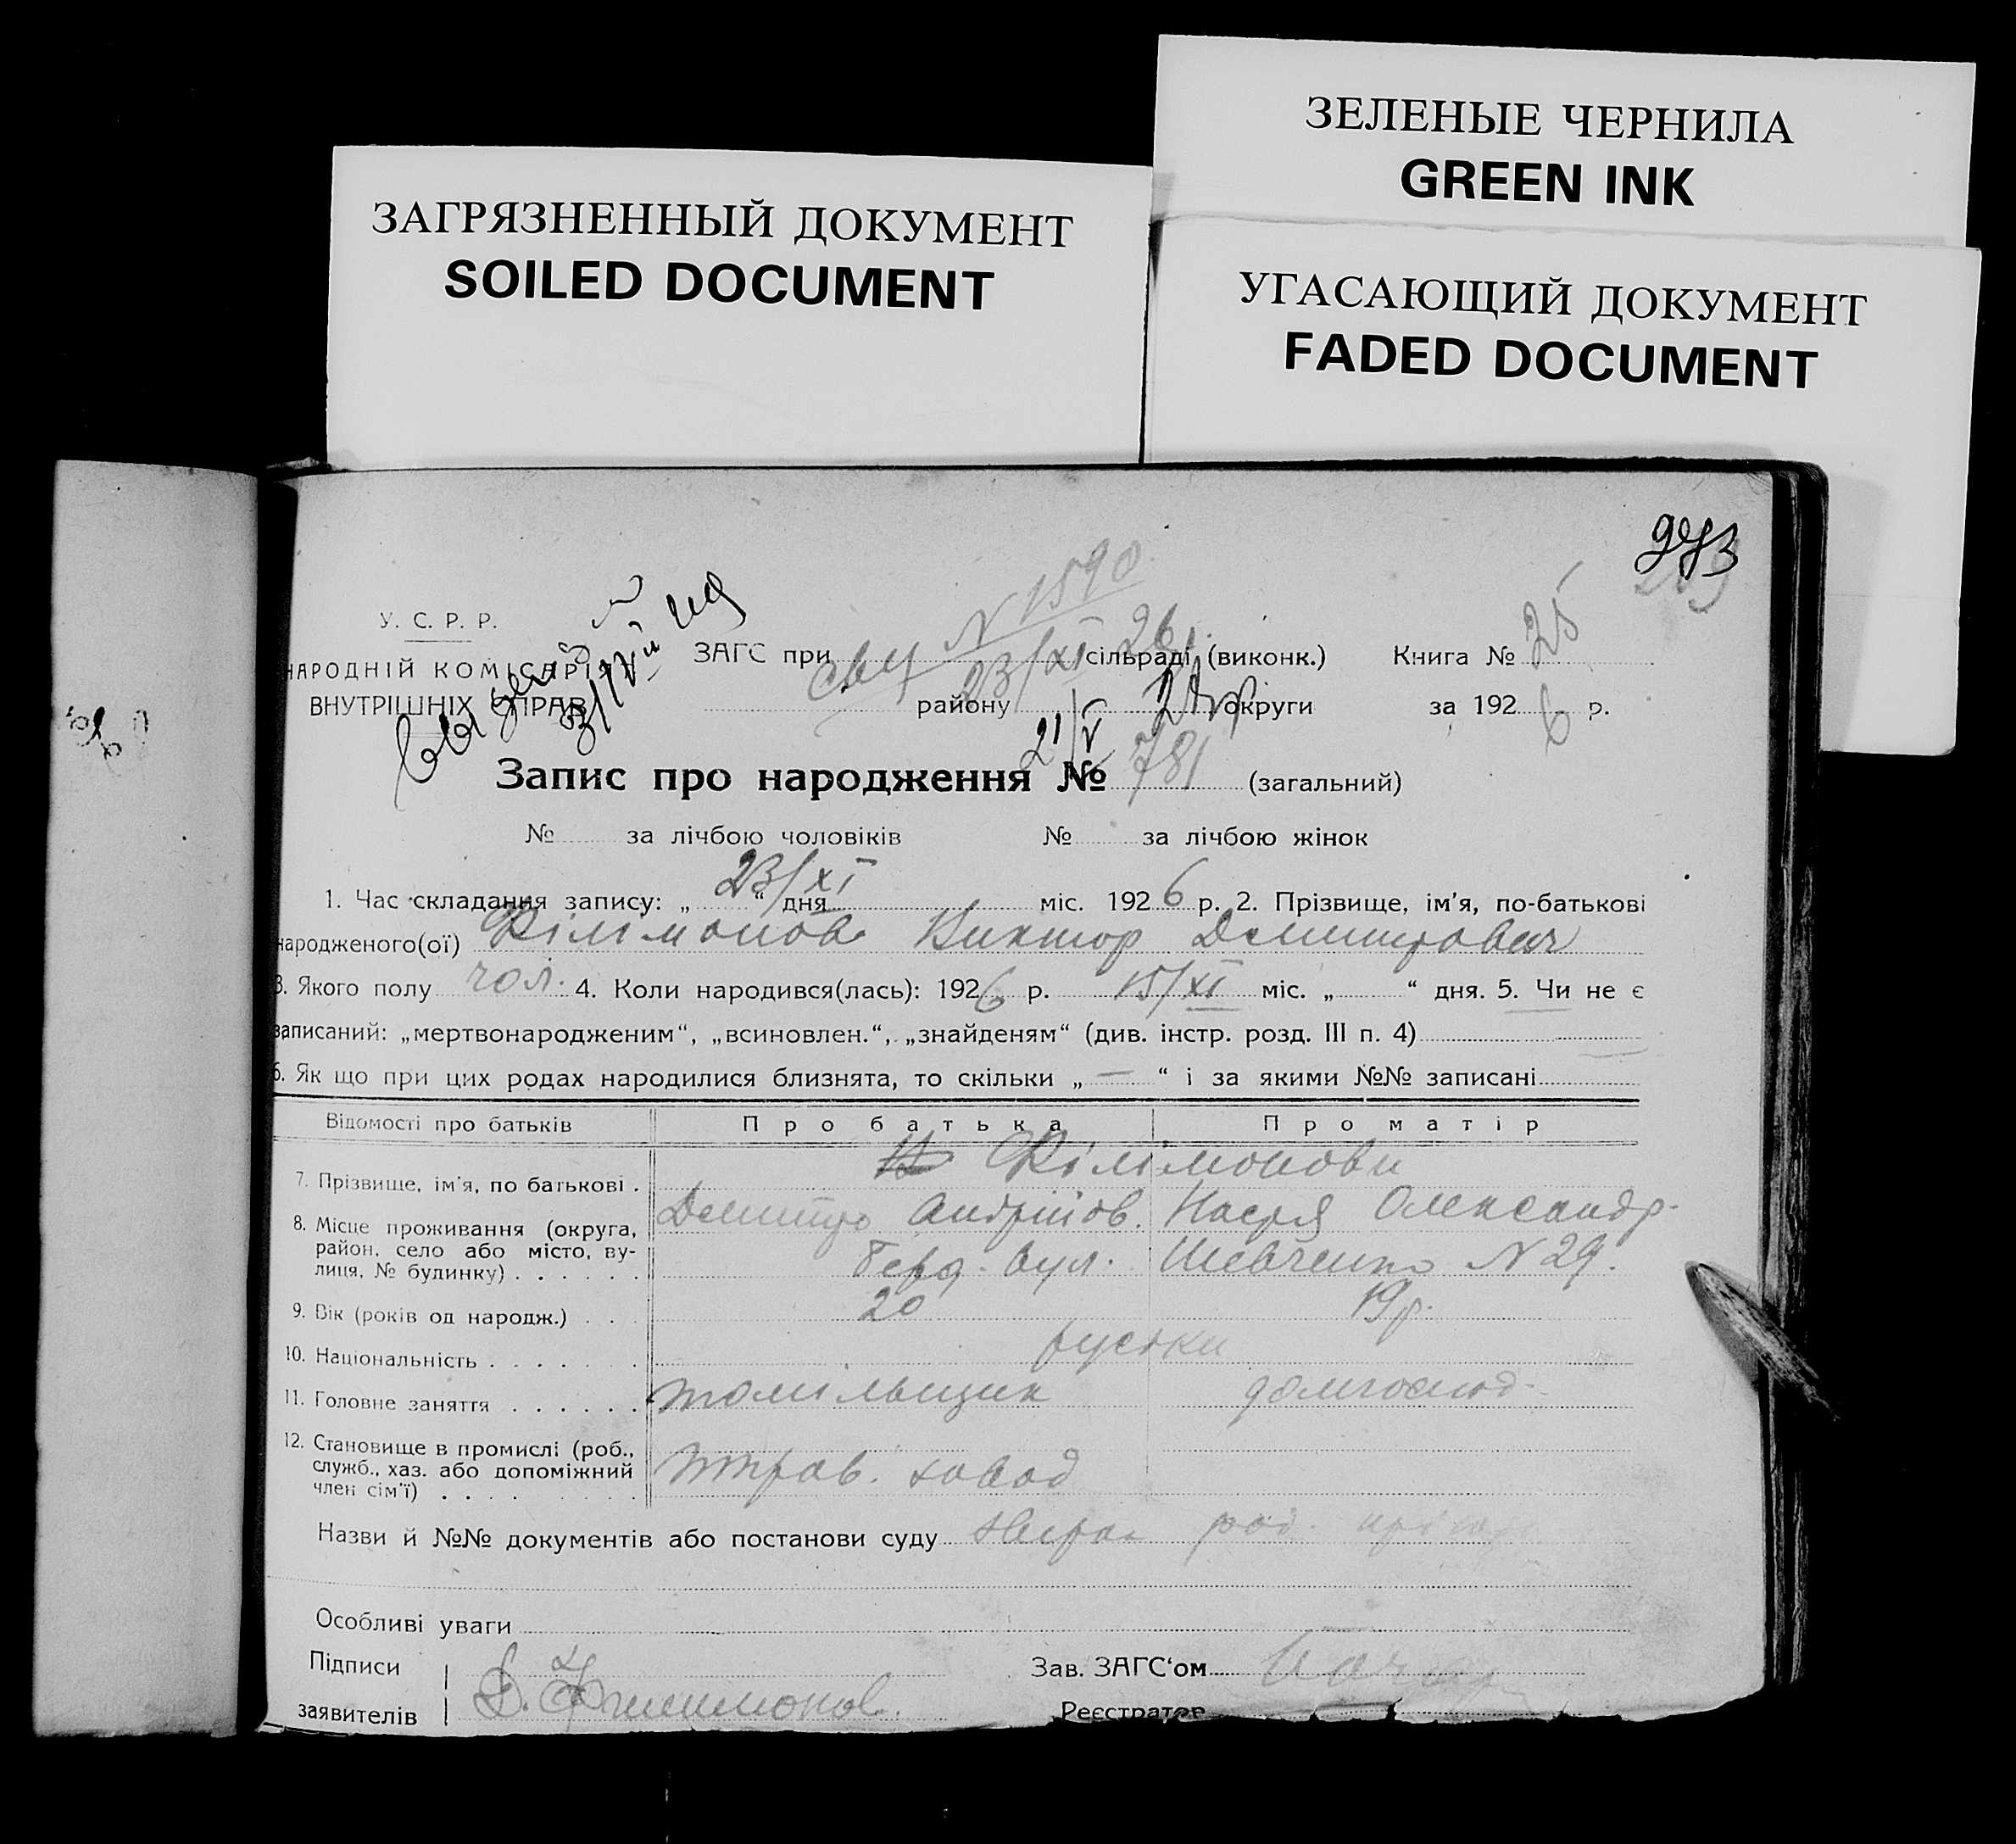 ЗЕЛЕНЫЕ ЧЕРНИЛА
GREEN INK
ЗАГРЯЗНЕННЫЙ ДОКУМЕНТ
SOILED DOCUMENT
УГАСАЮЩИЙ ДОКУМЕНТ
FADED DOCUMENT
273
N 1590
У. С. Р. Р.
НАРОДНІЙ КОМІСАРІЯТ
ВНУТРІШНІХ СПРАВ
ЗАГС при сільраді (виконк.) Книга № 25
23/XI 26 р.
району округи за 1926 р.
21/V
Запис про народження № 781 (загальний)
№ за лічбою чоловіків № за лічбою жінок
1. Час складання запису: „ 23/XI “ дня міс. 1926 р. 2. Прізвище, ім'я, по-батькові
народженого(ої) Філімонов Виктор Дмитрович
3. Якого полу чол. 4. Коли народився(лась): 1926 р. 15/XI міс. „ “ дня. 5. Чи не є
записаний: „мертвонародженим“, „всиновлен.“, „знайденям“ (див. інстр. розд. III п. 4)
6. Як що при цих родах народилися близнята, то скільки „ — “ і за якими №№ записані
Відомості про батьків Про батька Про матір
7. Прізвище, ім'я, по батькові . Філімонови
Дмитро Андрійов. Настя Олександр.
8. Місце проживання (округа, район, село або місто, вулиця, № будинку) . . . . . . вул. Шевченко N 29.
9. Вік (років од народж.) . . . 20 19 р.
10. Національність . . . . . . . руські
11. Головне заняття . . . . . . домгоспод.
12. Становище в промислі (роб., служб., хаз. або допоміжний член сім'ї) . . . . . завод
Назви й №№ документів або постанови суду
Особливі уваги
Підписи
заявителів Д. Филимонов.
Зав. ЗАГС'ом
Реєстратор